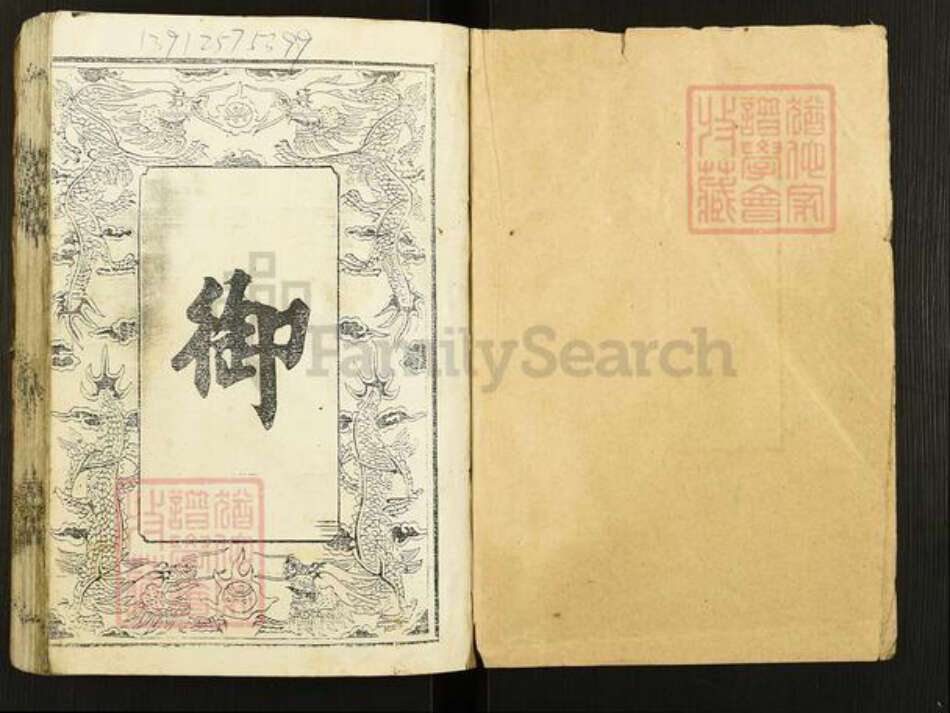 13912575399
御
FamilySearch
猶他家
譜學會
收藏
猶他家
譜學會
收藏